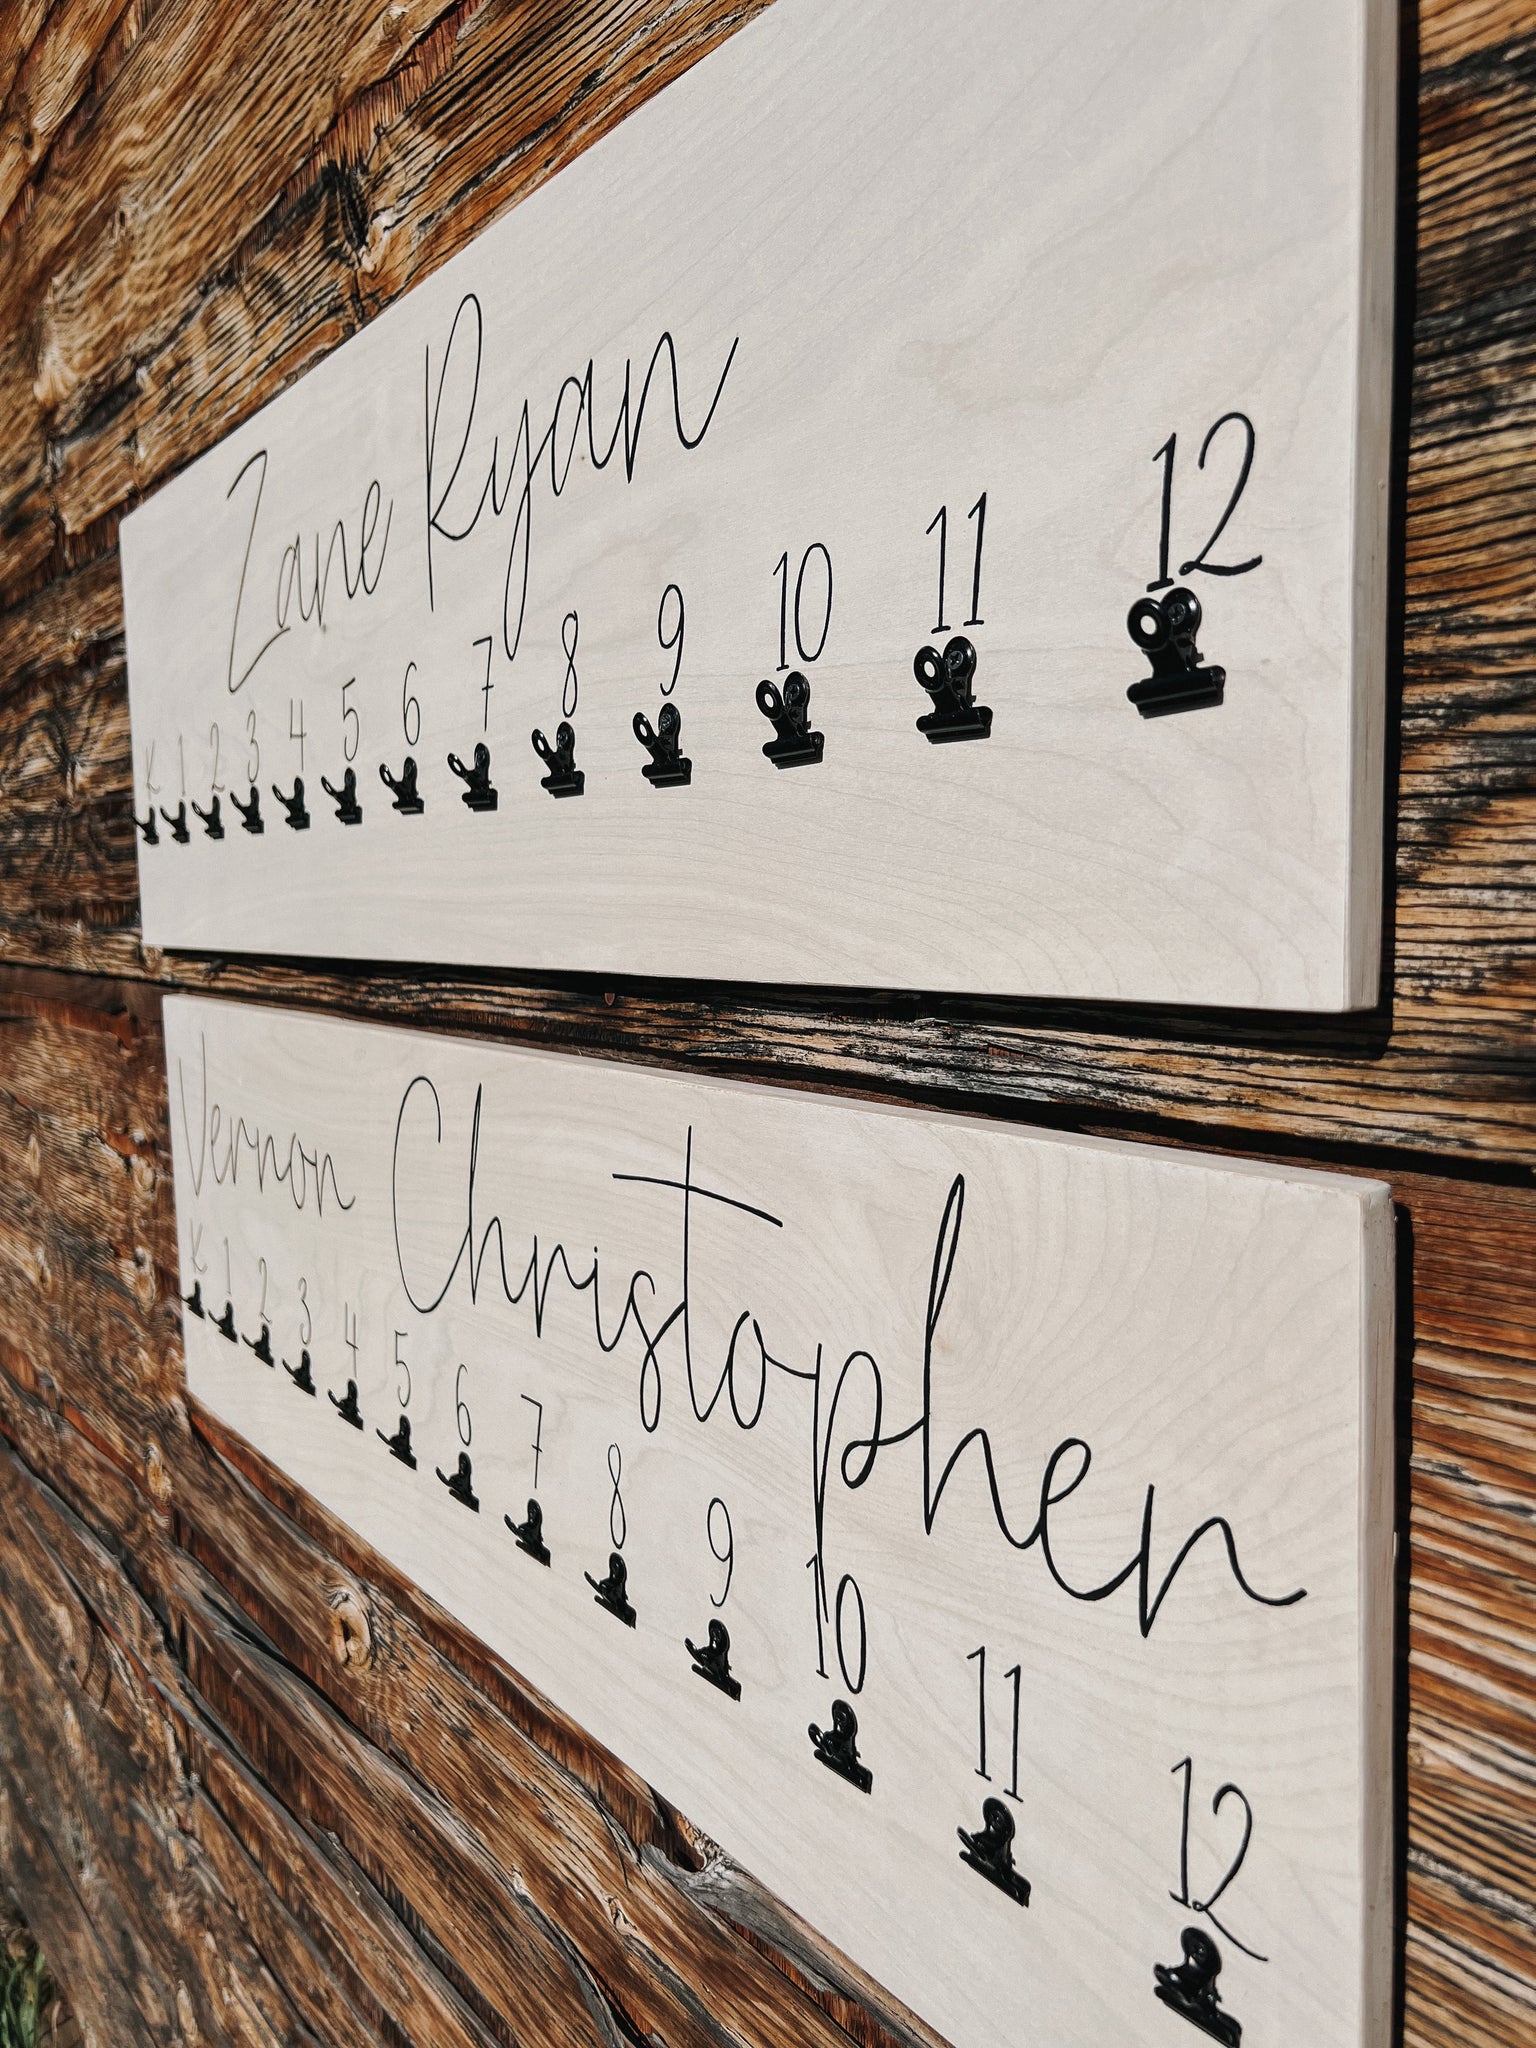 Zane Ryan
K 1 2 3 4 5 6 7 8 9 10 11 12
Vernon Christopher
K 1 2 3 4 5 6 7 8 9 10 11 12